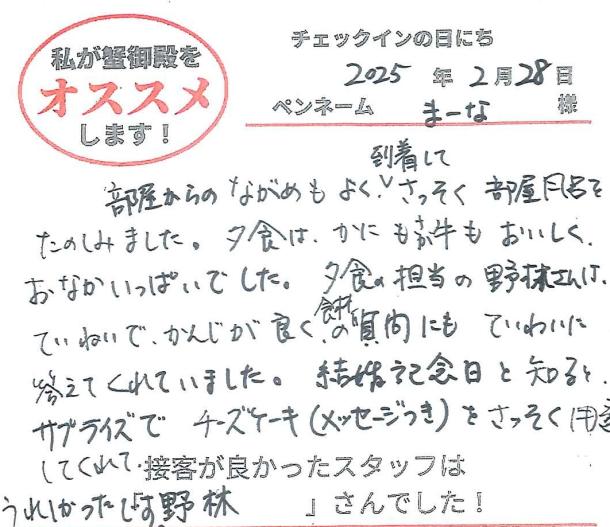 私が蟹御殿を
オススメ
します!
チェックインの日にち
2025 年 2月28日
ペンネーム まーな 様
到着して
部屋からのながめもよく、さっそく部屋風呂を
たのしみました。夕食は、かにもさが牛もおいしく、
おなかいっぱいでした。夕食の担当の野林さんは、
ていねいで、かんじが良く、食材の質問にもていねいに
答えてくれていました。結婚記念日と知ると、
サプライズでチーズケーキ(メッセージつき)をさっそく用意
してくれて、接客が良かったスタッフは
うれしかったです「野林 」さんでした!